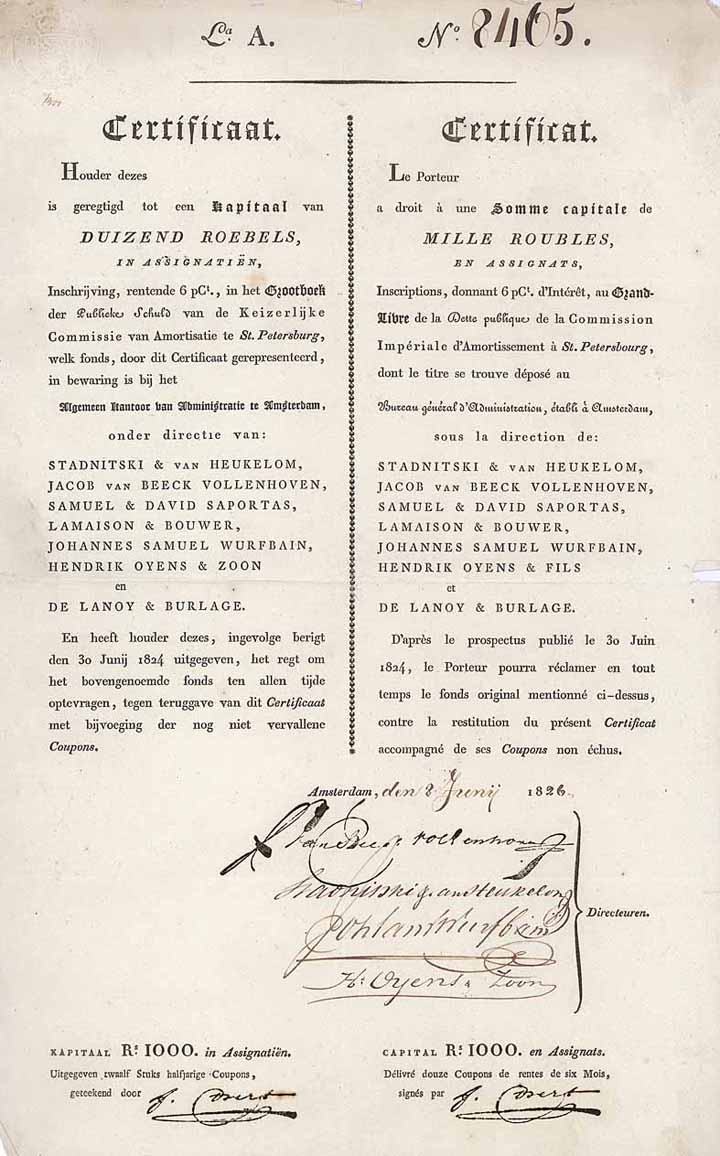 L.a A.
N.o 8465.
Certificaat.
Houder dezes
is geregtigd tot een Kapitaal van
DUIZEND ROEBELS,
IN ASSIGNATIËN,
Inschrijving, rentende 6 pCt., in het Grootboek
der Publieke Schuld van de Keizerlijke
Commissie van Amortisatie te St. Petersburg,
welk fonds, door dit Certificaat gerepresenteerd,
in bewaring is bij het
Algemeen Kantoor van Administratie te Amsterdam,
onder directie van:
STADNITSKI & VAN HEUKELOM,
JACOB VAN BEECK VOLLENHOVEN,
SAMUEL & DAVID SAPORTAS,
LAMAISON & BOUWER,
JOHANNES SAMUEL WURFBAIN,
HENDRIK OYENS & ZOON
en
DE LANOY & BURLAGE.
En heeft houder dezes, ingevolge berigt
den 30 Junij 1824 uitgegeven, het regt om
het bovengenoemde fonds ten allen tijde
optevragen, tegen teruggave van dit Certificaat
met bijvoeging der nog niet vervallene
Coupons.
Certificat.
Le Porteur
a droit à une Somme capitale de
MILLE ROUBLES,
EN ASSIGNATS,
Inscriptions, donnant 6 pCt. d'Intérêt, au Grand-
Livre de la Dette publique de la Commission
Impériale d'Amortissement à St. Petersbourg,
dont le titre se trouve déposé au
Bureau général d'Administration, établi à Amsterdam,
sous la direction de:
STADNITSKI & VAN HEUKELOM,
JACOB VAN BEECK VOLLENHOVEN,
SAMUEL & DAVID SAPORTAS,
LAMAISON & BOUWER,
JOHANNES SAMUEL WURFBAIN,
HENDRIK OYENS & FILS
et
DE LANOY & BURLAGE.
D'après le prospectus publié le 30 Juin
1824, le Porteur pourra réclamer en tout
temps le fonds original mentionné ci-dessus,
contre la restitution du présent Certificat
accompagné de ses Coupons non échus.
Amsterdam, den 8 Junij 1826
Van Beeck Vollenhoven
Stadnitski & van Heukelom
Joh Sam Wurfbain
Hk Oyens & Zoon
Directeuren.
KAPITAAL Rs. 1000. in Assignatiën.
Uitgegeven twaalf Stuks halfjarige Coupons,
geteekend door
CAPITAL Rs. 1000. en Assignats.
Délivré douze Coupons de rentes de six Mois,
signés par